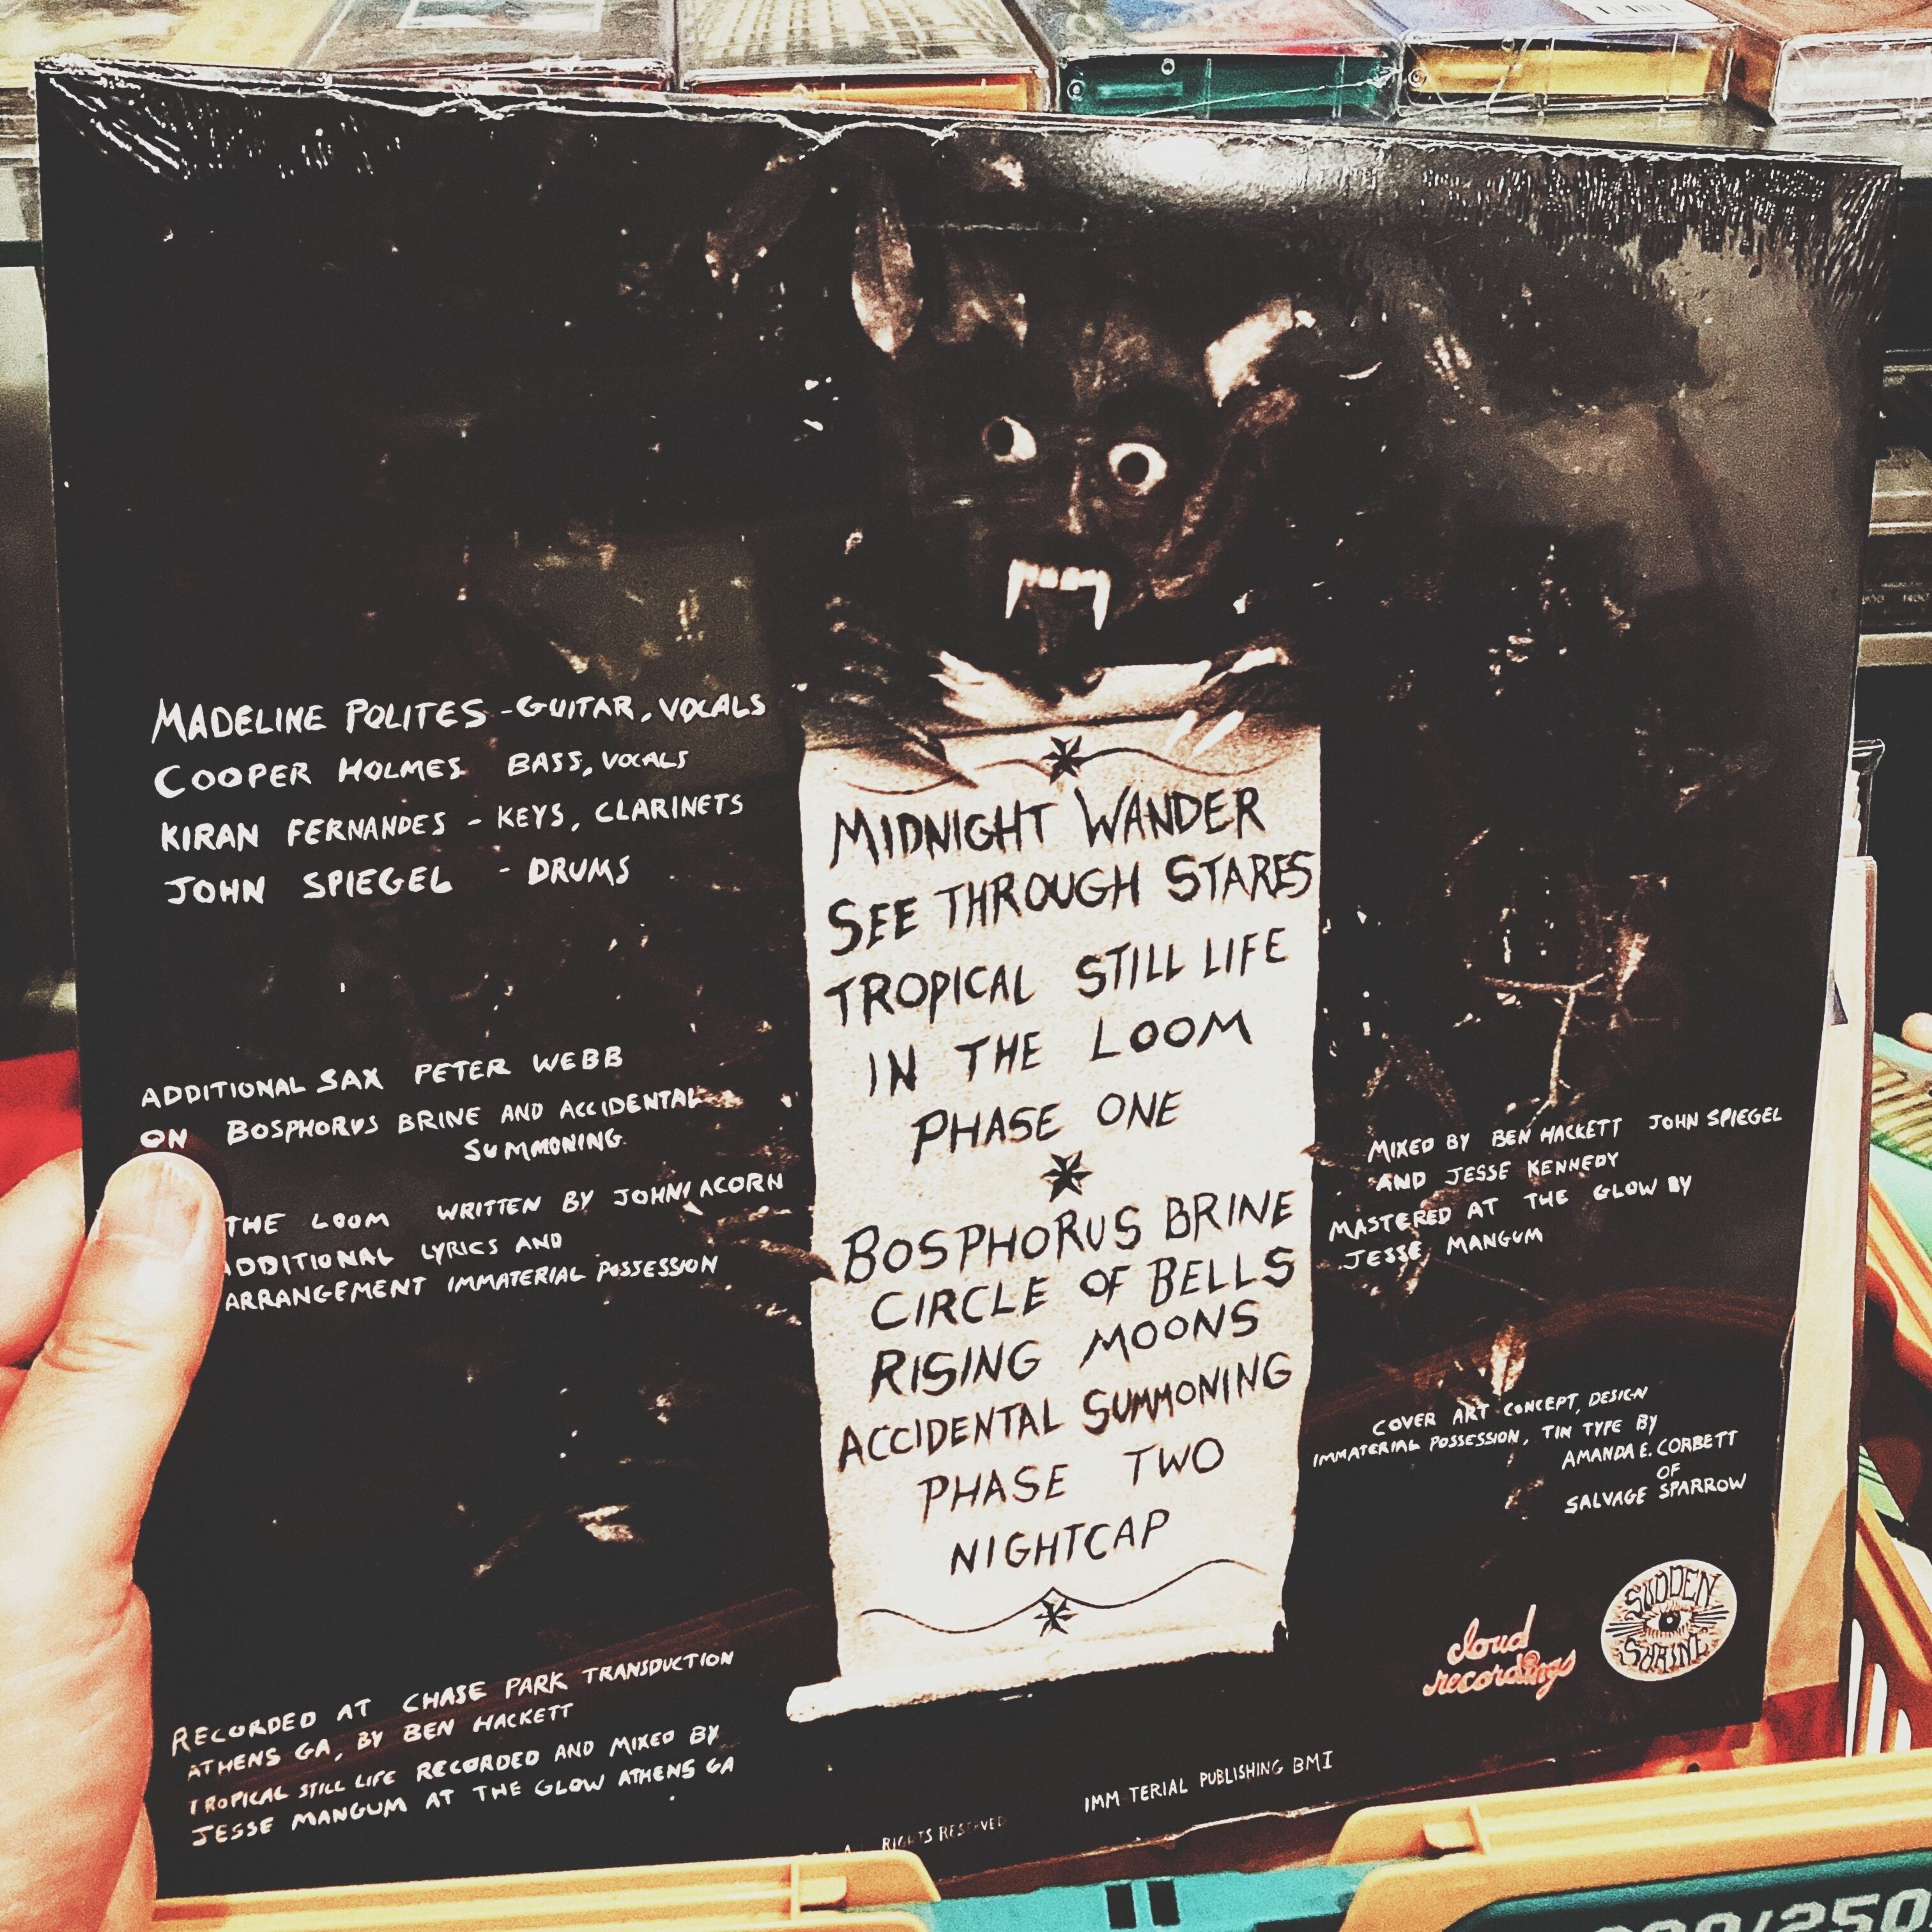 MADELINE POLITES - GUITAR, VOCALS
COOPER HOLMES BASS, VOCALS
KIRAN FERNANDES - KEYS, CLARINETS
JOHN SPIEGEL - DRUMS
ADDITIONAL SAX PETER WEBB
ON BOSPHORUS BRINE AND ACCIDENTAL
SUMMONING.
THE LOOM WRITTEN BY JOHN ACORN
ADDITIONAL LYRICS AND
ARRANGEMENT IMMATERIAL POSSESSION
RECORDED AT CHASE PARK TRANSDUCTION
ATHENS GA, BY BEN HACKETT
TROPICAL STILL LIFE RECORDED AND MIXED BY
JESSE MANGUM AT THE GLOW ATHENS GA
MIDNIGHT WANDER
SEE THROUGH STARES
TROPICAL STILL LIFE
IN THE LOOM
PHASE ONE
BOSPHORUS BRINE
CIRCLE OF BELLS
RISING MOONS
ACCIDENTAL SUMMONING
PHASE TWO
NIGHTCAP
MIXED BY BEN HACKETT JOHN SPIEGEL
AND JESSE KENNEDY
MASTERED AT THE GLOW BY
JESSE MANGUM
COVER ART CONCEPT, DESIGN
IMMATERIAL POSSESSION, TIN TYPE BY
AMANDA E. CORBETT
OF
SALVAGE SPARROW
cloud
recordings
SUDDEN
SHRINE
IMM TERIAL PUBLISHING BMI
RIGHTS RESERVED